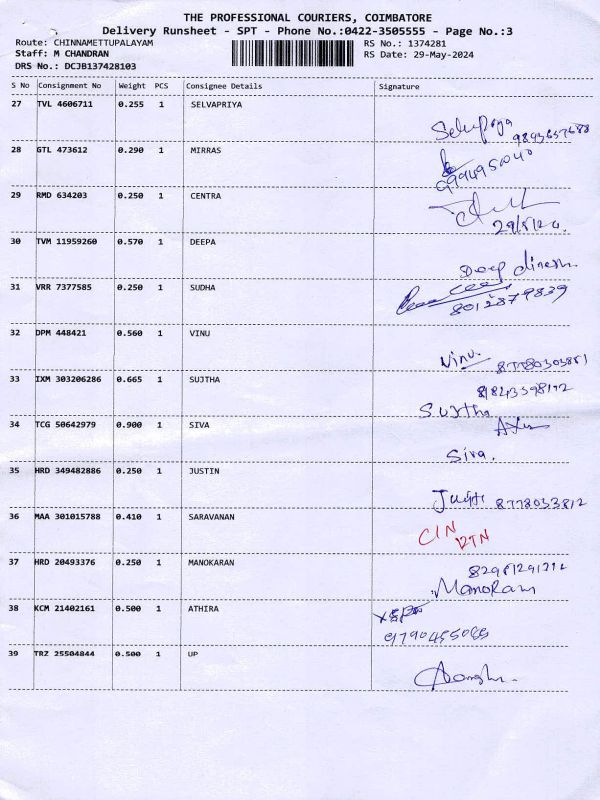 THE PROFESSIONAL COURIERS, COIMBATORE
Delivery Runsheet - SPT - Phone No.:0422-3505555 - Page No.:3
Route: CHINNAMETTUPALAYAM RS No.: 1374281
Staff: M CHANDRAN RS Date: 29-May-2024
DRS No.: DCJB137428103
S No Consignment No Weight PCS Consignee Details Signature
27 TVL 4606711 0.255 1 SELVAPRIYA
Selvapriya
28 GTL 473612 0.290 1 MIRRAS
29 RMD 634203 0.250 1 CENTRA
30 TVM 11959260 0.570 1 DEEPA
Deep dinesh
31 VRR 7377585 0.250 1 SUDHA
8012879839
32 DPM 448421 0.560 1 VINU
Vinu.
33 IXM 303206286 0.665 1 SUJTHA
Sujtha
34 TCG 50642979 0.900 1 SIVA
Siva.
35 HRD 349482886 0.250 1 JUSTIN
8778033812
36 MAA 301015788 0.410 1 SARAVANAN
CIN
RTN
37 HRD 20493376 0.250 1 MANOKARAN
38 KCM 21402161 0.500 1 ATHIRA
9790455086
39 TRZ 25504844 0.500 1 UP